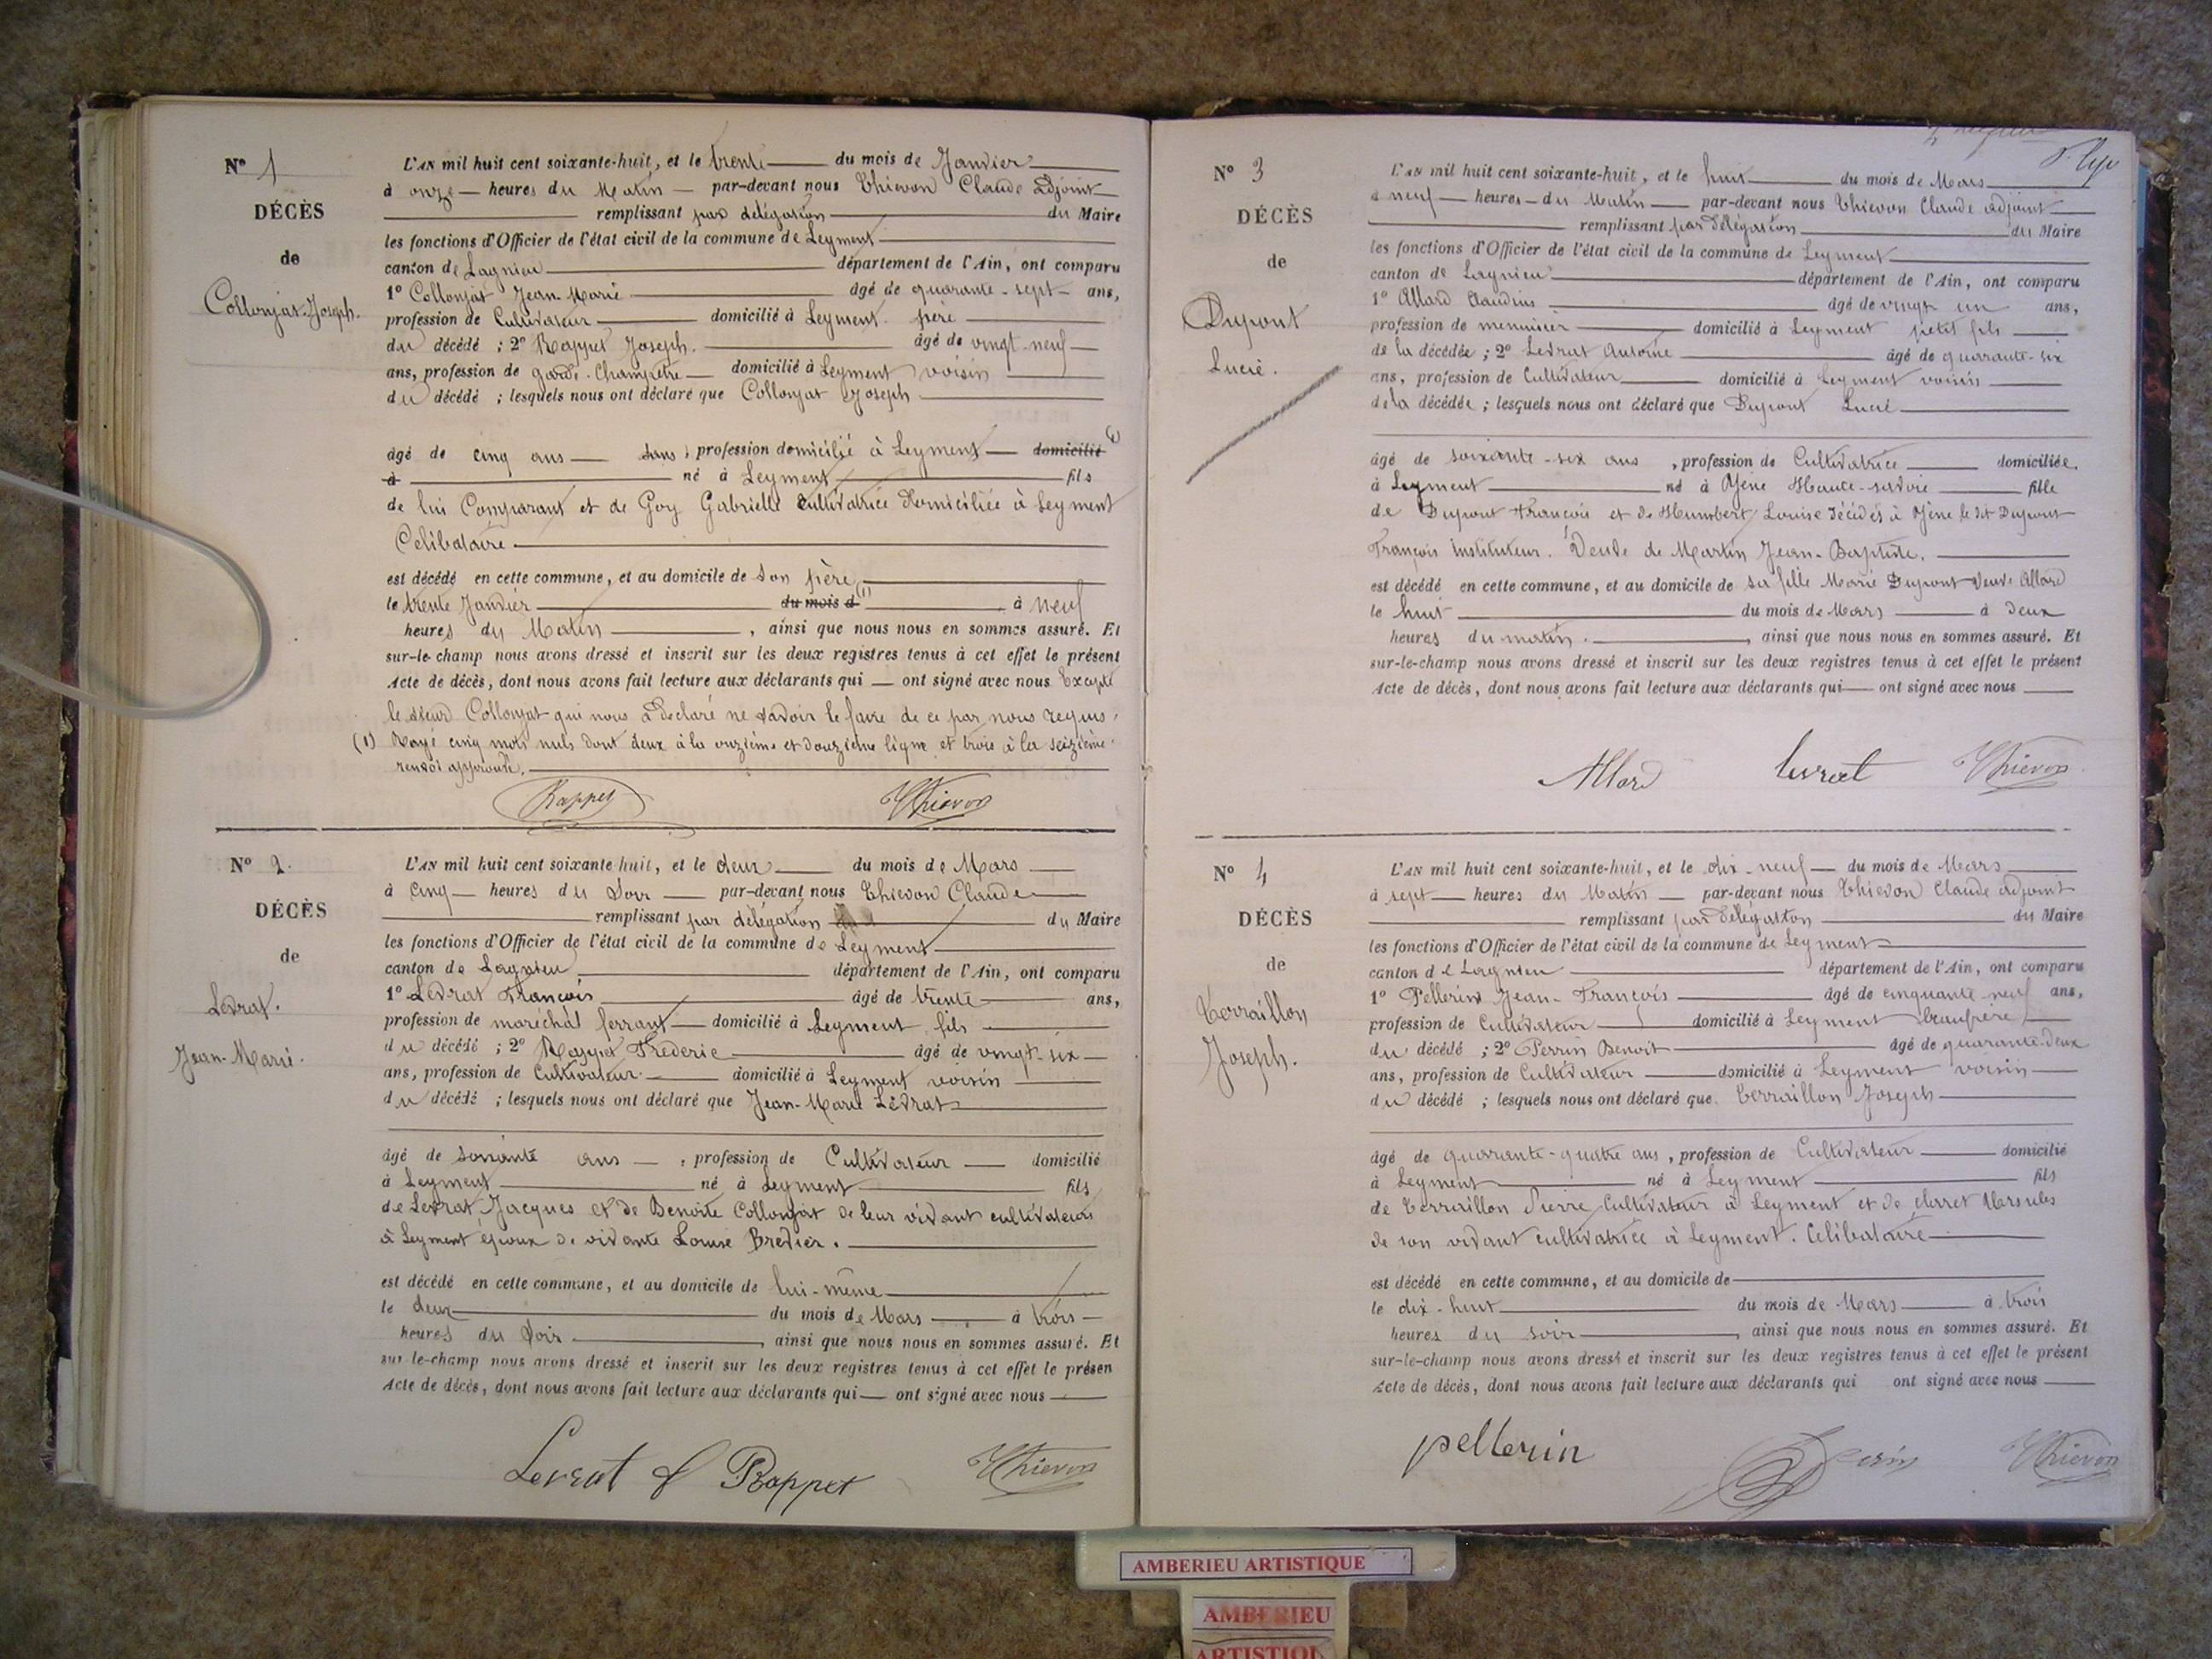 N° 1
DÉCÈS
de
Collonjat Joseph.
L'AN mil huit cent soixante-huit, et le trente du mois de Janvier
à onze heures du Matin par-devant nous Thievon Claude Adjoint
remplissant par délégation du Maire
les fonctions d'Officier de l'état civil de la commune de Leyment
canton de Lagnieu département de l'Ain, ont comparu
1° Collonjat Jean-Marie âgé de quarante-sept ans,
profession de Cultivateur domicilié à Leyment père
du décédé ; 2° Rappet Joseph. âgé de vingt-neuf
ans, profession de garde-Champêtre domicilié à Leyment voisin
du décédé ; lesquels nous ont déclaré que Collonjat Joseph
âgé de cinq ans sans profession domicilié à Leyment domicilié (1)
à né à Leyment fils
de lui Comparant et de Goy Gabrielle cultivatrice domiciliée à Leyment
Celibataire
est décédé en cette commune, et au domicile de son père
le trente Janvier du mois d (1) à neuf
heures du Matin , ainsi que nous nous en sommes assuré. Et
sur-le-champ nous avons dressé et inscrit sur les deux registres tenus à cet effet le présent
Acte de décès, dont nous avons fait lecture aux déclarants qui ont signé avec nous Excepté
le sieur Collonjat qui nous a declaré ne savoir le faire de ce par nous requis.
(1) Rayé cinq mots nuls dont deux à la onzième et douzième ligne et trois à la seizième.
renvoi approuvé.
Rappet Thievon
N° 2.
DÉCÈS
de
Levrat.
Jean-Marie.
L'AN mil huit cent soixante-huit, et le deux du mois de Mars
à cinq heures du Soir par-devant nous Thievon Claude
remplissant par délégation du Maire
les fonctions d'Officier de l'état civil de la commune de Leyment
canton de Lagnieu département de l'Ain, ont comparu
1° Levrat François âgé de trente ans,
profession de maréchal ferrant domicilié à Leyment fils
du décédé ; 2° Rappet Frederic âgé de vingt-six
ans, profession de Cultivateur domicilié à Leyment voisin
du décédé ; lesquels nous ont déclaré que Jean-Marie Levrat
âgé de soixante ans , profession de Cultivateur domicilié
à Leyment né à Leyment fils
de Levrat Jacques et de Benoite Collonjat de leur vivant cultivateurs
à Leyment époux de vivante Louise Bredier.
est décédé en cette commune, et au domicile de lui-même
le deux du mois de Mars à trois
heures du Soir , ainsi que nous nous en sommes assuré. Et
sur-le-champ nous avons dressé et inscrit sur les deux registres tenus à cet effet le présen
Acte de décès, dont nous avons fait lecture aux déclarants qui ont signé avec nous
Levrat f Rappet Thievon
N° 3
DÉCÈS
de
Dupont
Lucie.
L'AN mil huit cent soixante-huit, et le huit du mois de Mars
à neuf heures du Matin par-devant nous Thievon Claude adjoint
remplissant par délégation du Maire
les fonctions d'Officier de l'état civil de la commune de Leyment
canton de Lagnieu département de l'Ain, ont comparu
1° Allard Claudius âgé de vingt un ans,
profession de menuisier domicilié à Leyment petit fils
de la décédée ; 2° Levrat Antoine âgé de quarante-six
ans, profession de Cultivateur domicilié à Leyment voisin
de la décédée ; lesquels nous ont déclaré que Dupont Lucie
âgé de soixante-six ans , profession de Cultivatrice domiciliée
à Leyment né à Yène Haute-savoie fille
de Dupont François et de Humbert Louise décédés à Yène le dit Dupont
François instituteur. Veuve de Martin Jean-Baptiste.
est décédé en cette commune, et au domicile de sa fille Marie Dupont veuve Allard
le huit du mois de Mars à deux
heures du matin. , ainsi que nous nous en sommes assuré. Et
sur-le-champ nous avons dressé et inscrit sur les deux registres tenus à cet effet le présent
Acte de décès, dont nous avons fait lecture aux déclarants qui ont signé avec nous
Allard Levrat Thievon
N° 4
DÉCÈS
de
Terraillon
Joseph.
L'AN mil huit cent soixante-huit, et le dix-neuf du mois de Mars
à sept heures du Matin par-devant nous Thievon Claude adjoint
remplissant par délégation du Maire
les fonctions d'Officier de l'état civil de la commune de Leyment
canton de Lagnieu département de l'Ain, ont comparu
1° Pellerin Jean-François âgé de cinquante-neuf ans,
profession de Cultivateur domicilié à Leyment beaupère
du décédé ; 2° Perrin Benoit âgé de quarante-deux
ans, profession de Cultivateur domicilié à Leyment voisin
du décédé ; lesquels nous ont déclaré que Terraillon Joseph
âgé de quarante-quatre ans , profession de Cultivateur domicilié
à Leyment né à Leyment fils
de Terraillon Pierre Cultivateur à Leyment et de Claret
de son vivant cultivatrice à Leyment. Célibataire
est décédé en cette commune, et au domicile de
le dix-huit du mois de Mars à trois
heures du soir , ainsi que nous nous en sommes assuré. Et
sur-le-champ nous avons dressé et inscrit sur les deux registres tenus à cet effet le présent
Acte de décès, dont nous avons fait lecture aux déclarants qui ont signé avec nous
pellerin Thievon
AMBERIEU ARTISTIQUE
AMBERIEU
ARTISTIQU